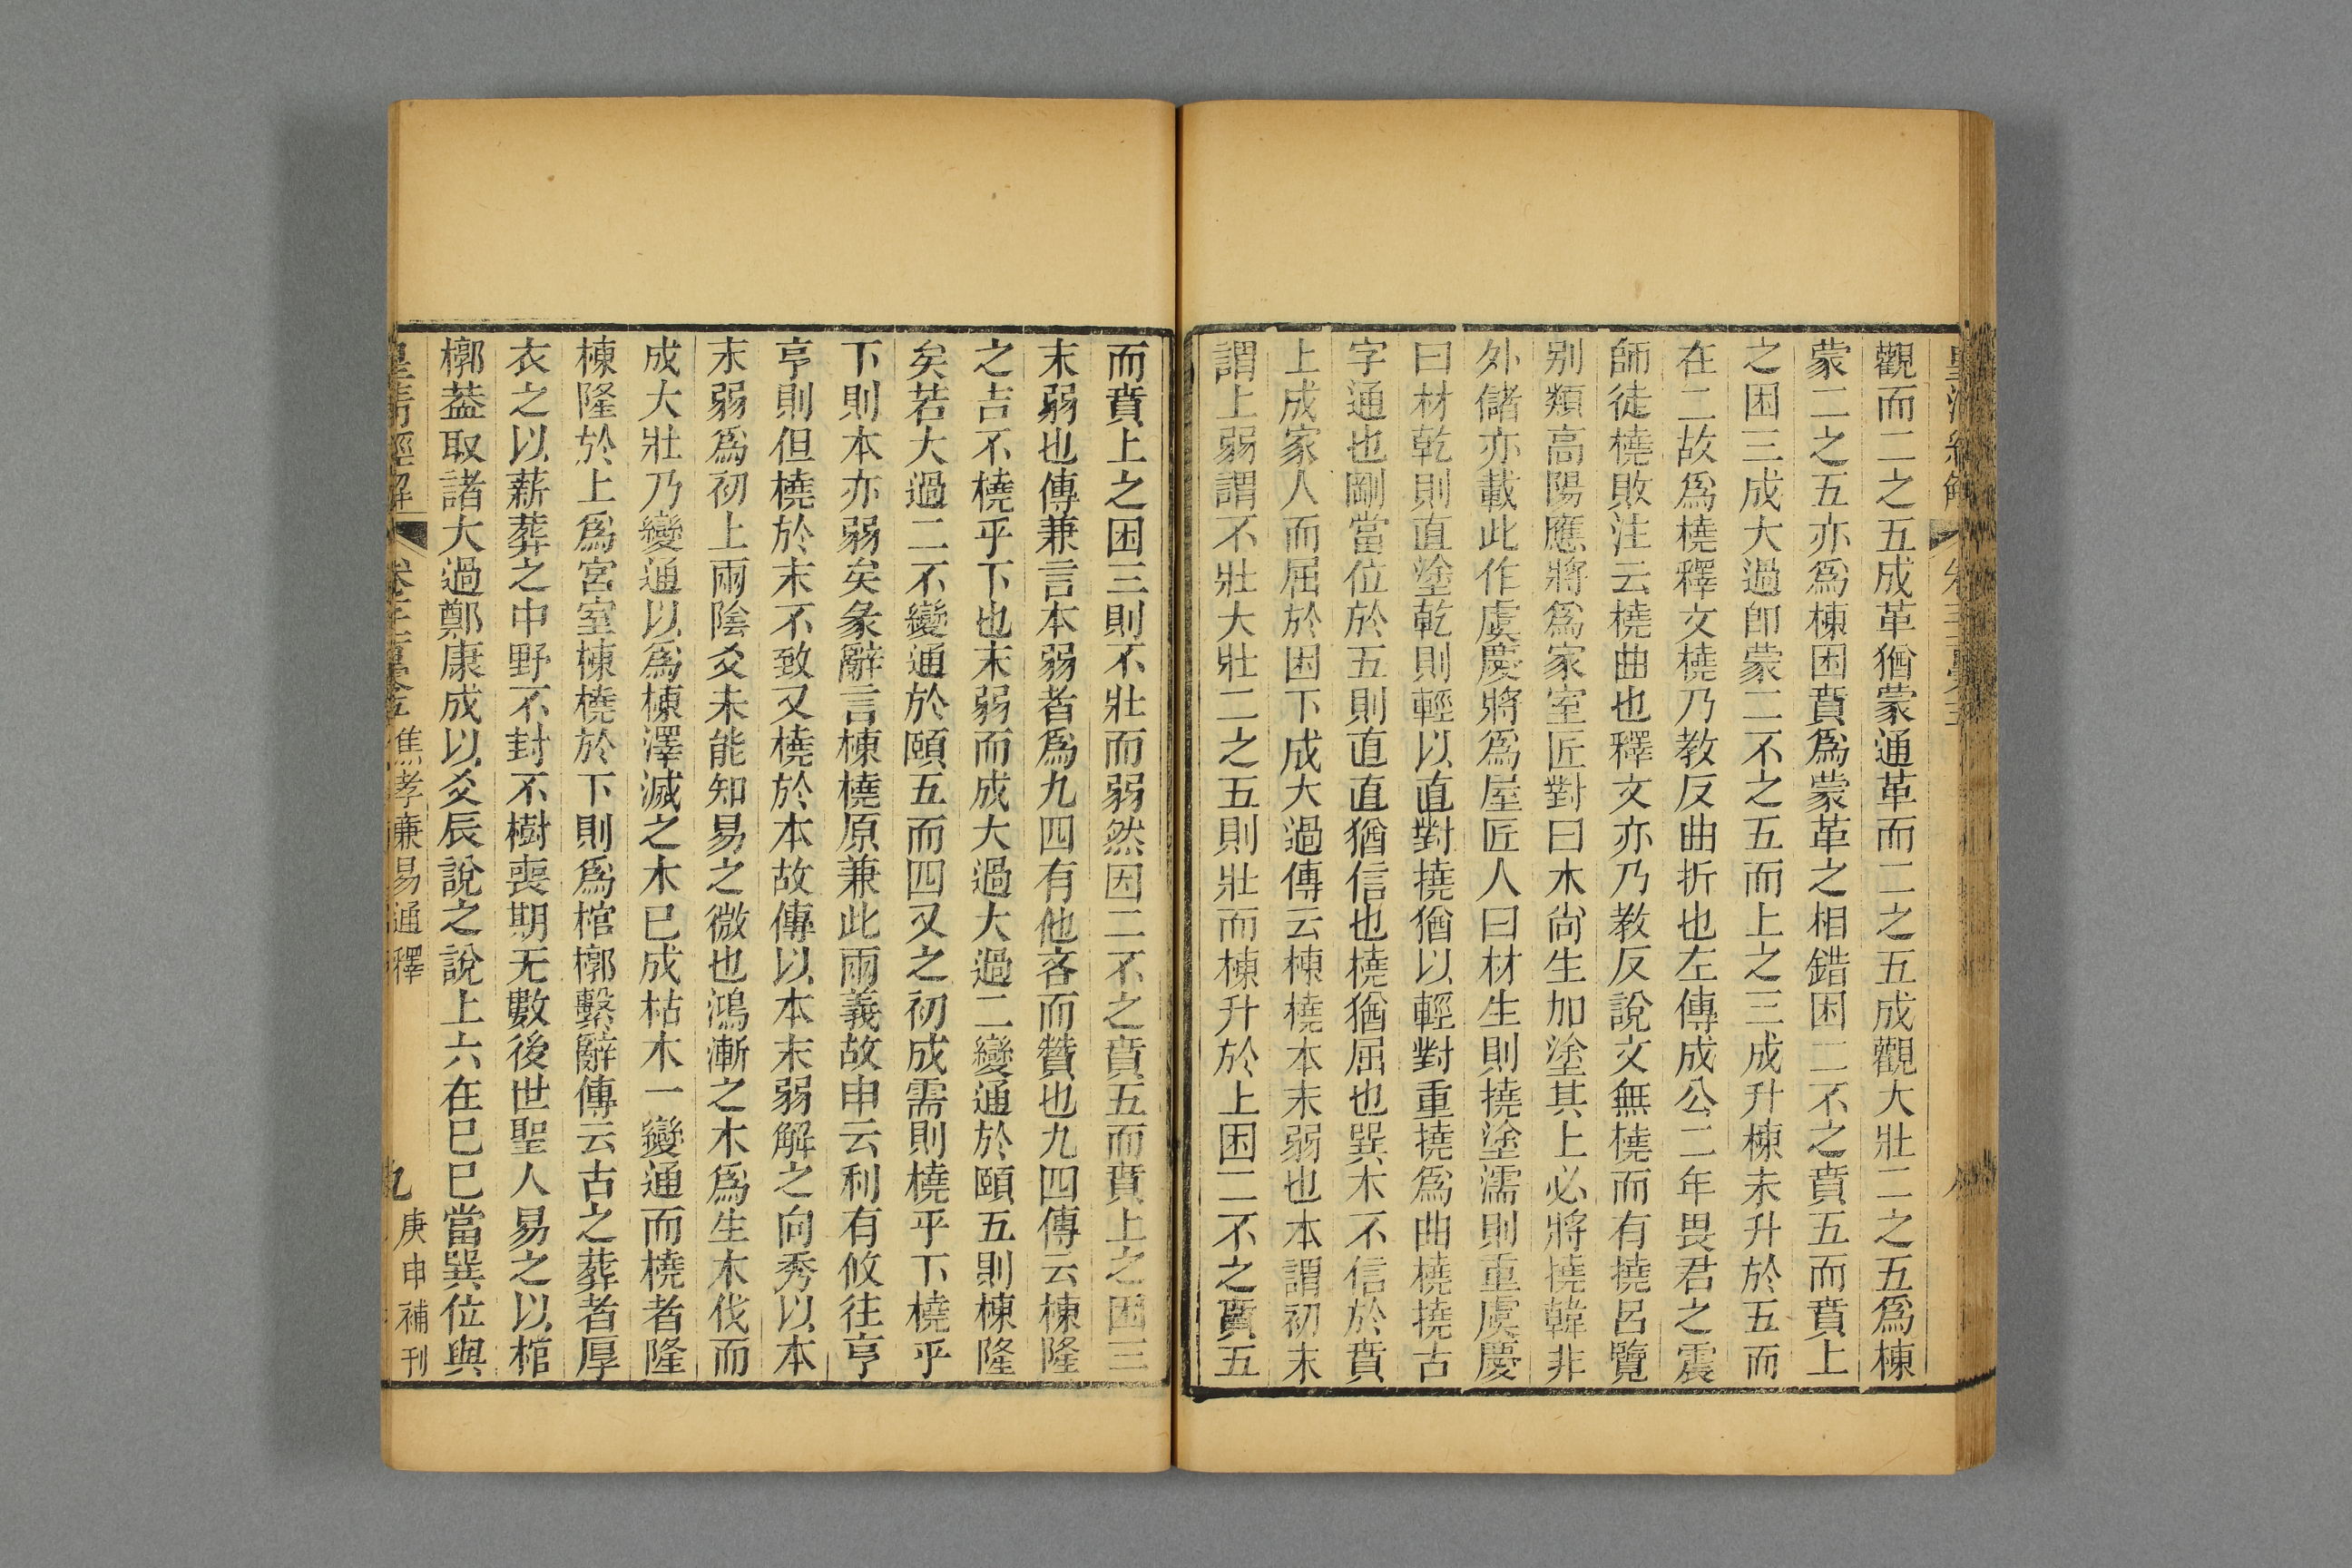 觀而二之五成革猶蒙通革而二之五成觀大壯二之五爲棟
蒙二之五亦爲棟困賁爲蒙革之相錯困二不之賁五而賁上
之困三成大過卽蒙二不之五而上之三成升棟未升於五而
在二故爲橈釋文橈乃教反曲折也左傳成公二年畏君之震
師徒橈敗注云橈曲也釋文亦乃教反說文無橈而有撓呂覽
別類高陽應將爲家室匠對曰木尙生加塗其上必將撓韓非
外儲亦載此作虞慶將爲屋匠人曰材生則撓塗濡則重虞慶
曰材乾則直塗乾則輕以直對撓猶以輕對重撓爲曲橈撓古
字通也剛當位於五則直直猶信也橈猶屈也巽木不信於賁
上成家人而屈於困下成大過傳云棟橈本末弱也本謂初末
謂上弱謂不壯大壯二之五則壯而棟升於上困二不之賁五
而賁上之困三則不壯而弱然因二不之賁五而賁上之困三
末弱也傳兼言本弱者爲九四有他吝而贊也九四傳云棟隆
之吉不橈乎下也末弱而成大過大過二變通於頤五則棟隆
矣若大過二不變通於頤五而四又之初成需則橈乎下橈乎
下則本亦弱矣彖辭言棟橈原兼此兩義故申云利有攸往亨
亨則但橈於末不致又橈於本故傳以本末弱解之向秀以本
末弱爲初上兩陰爻未能知易之微也鴻漸之木爲生木伐而
成大壯乃變通以爲棟澤滅之木已成枯木一變通而橈者隆
棟隆於上爲宮室棟橈於下則爲棺槨繫辭傳云古之葬者厚
衣之以薪葬之中野不封不樹喪期无數後世聖人易之以棺
槨葢取諸大過鄭康成以爻辰說之說上六在巳巳當巽位與
皇淸經解 焦孝廉易通釋 九 庚申補刊